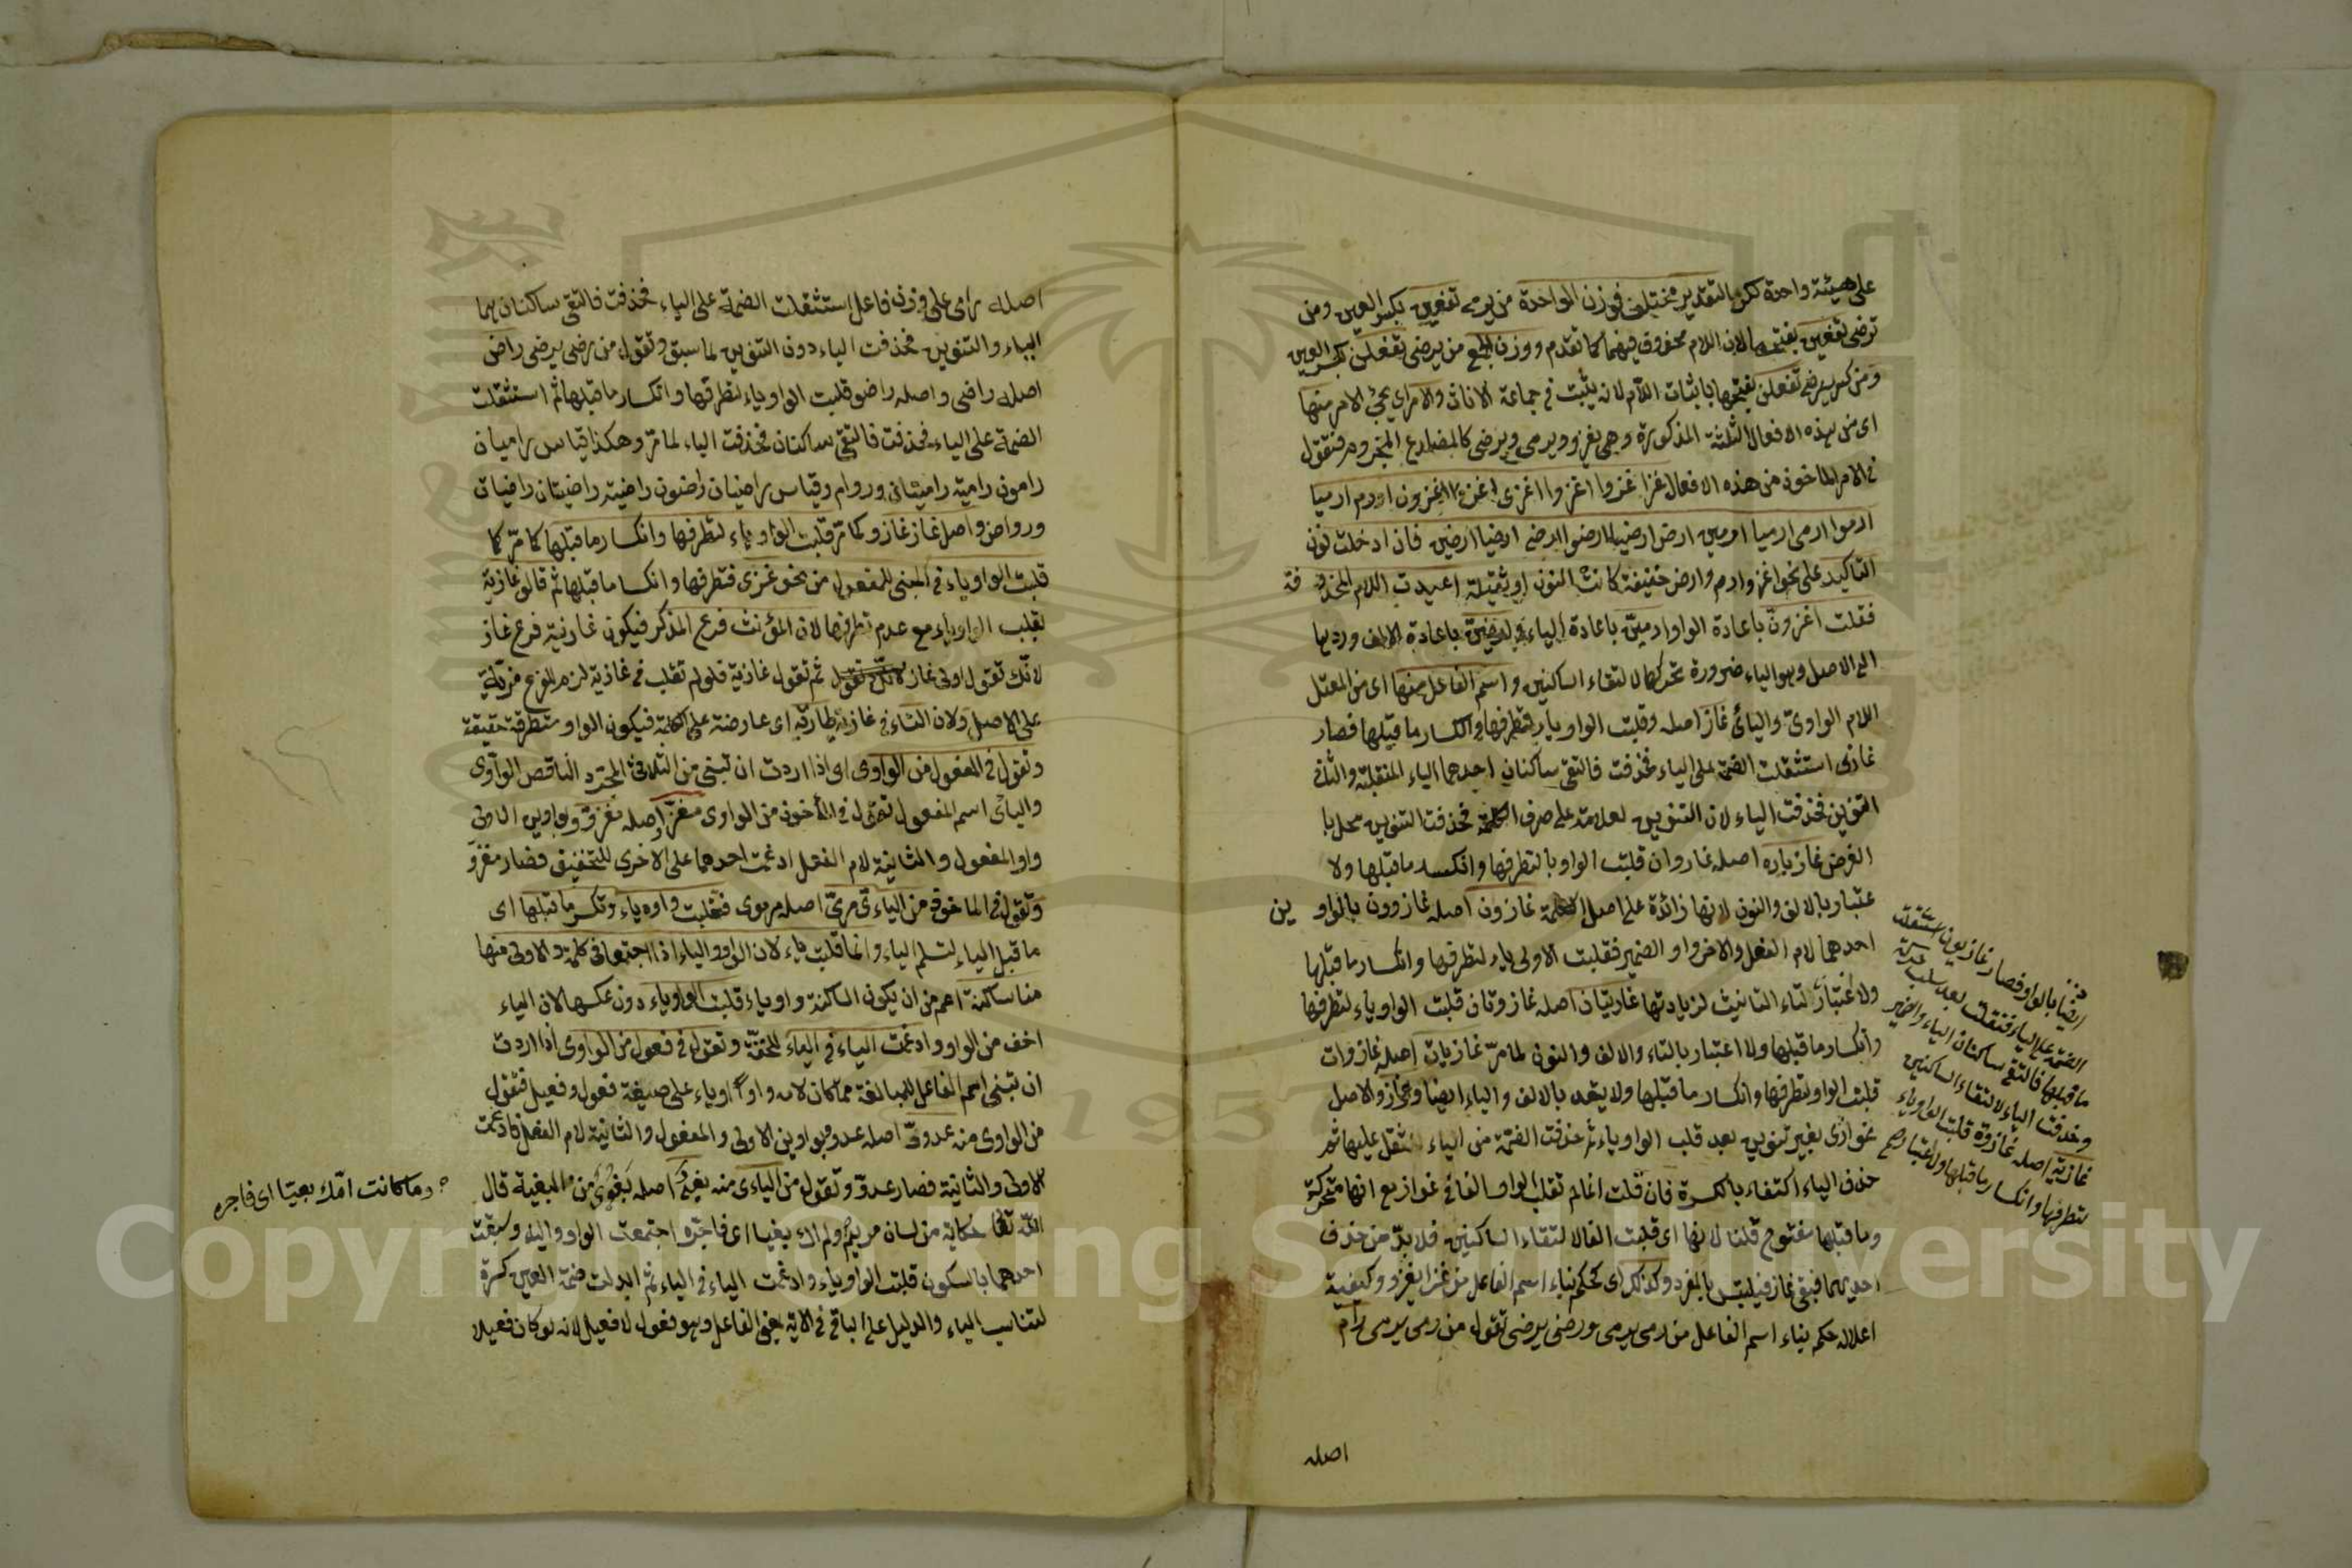 على هيئة واحدة لكن التقدير مختلف فوزن الواحدة من يرمي تفعين بكسر العين ومن
ترضى تفعين بفتحها لان اللام محذوف فيهما كما تقدم ووزن الجمع من يرمى تفعلن بكسر العين
ومن يرضى تفعلن بفتحها باثبات اللام لانه يثبت فى جماعة الاناث والامر اى يجئ الامر منها
اى من هذه الافعال الثلثة المذكورة وهى يغزو ويرمى ويرضى كالمضارع المجزوم فتقول
فى الامر المأخوذ من هذه الافعال اغز اغزوا اغزوا اغزى اغزوا اغزون ارم ارميا
ارموا ارمى ارميا ارمين ارض ارضيا ارضوا ارضى ارضيا ارضين فان ادخلت نون
التاكيد على نحو اغز وارم وارض خفيفة كانت النون او ثقيلة اعيدت اللام المحذوفة
فقلت اغزونّ باعادة الواو ارمينّ باعادة الياء وارضينّ باعادة الالف وردها
الى الاصل وهو الياء ضرورة تحركها لالتقاء الساكنين واسم الفاعل منها اى من المعتل
اللام الواوىّ واليائىّ غاز اصله وقلبت الواو ياء لتطرفها وانكسار ما قبلها فصار
غازى استثقلت الضمة على الياء فحذفت فالتقى ساكنان احدهما الياء المنقلبة والثانى
التنوين فحذفت الياء لان التنوين لعلامة على صرف الكلمة فحذفت التنوين مخل با
الغرض غازيان اصله غازوان قلبت الواو يا لتطرفها وانكسار ما قبلها ولا
عتبار بالالف والنون لانها زائدة على اصل الكلمة غازون اصله غازوون بالواوين
احدهما لام الفعل والاخر واو الضمير فقلبت الاولى ياء لتطرفها وانكسار ما قبلها
ولا اعتبار لتاء التانيث لزيادتها غازيتان اصله غازوتان قلبت الواو ياء لتطرفها
وانكسار ما قبلها ولا اعتبار بالتاء والالف والنون لما مرّ غازيات اصله غازوات
قلبت الواو لتطرفها وانكسار ما قبلها ولا يعتد بالالف والياء ايضا وغواز والاصل
غوازى بغير تنوين بعد قلب الواو ياء ثم حذفت الضمة من الياء لثقل عليها ثم
حذف الياء اكتفاء بالكسرة فان قلت لم لم تقلب الواو الفا فى غواز مع انها متحركة
وما قبلها مفتوح قلنا لانها اى قلبت الفا لالتقاء الساكنين فلا بدّ من حذف
احديهما فبقى غاز فيلتبس بالمفرد وكذلك اى كحكم بناء اسم الفاعل من غزا يغزو وكيفية
اعلاله حكم بناء اسم الفاعل من رمى يرمى ورضى يرضى تقول من رمى يرمى رام
ايضا بالواو فصار غازيون استثقلت
الضمة على الياء فنقلت بعد سلب حركة
ما قبلها فالتقى ساكنان الياء والضمير
وحذفت الياء لالتقاء الساكنين
غازية اصله غازوة قلبت الواو ياء
لتطرفها وانكسار ما قبلها ولا اعتبار صح
اصله
اصله رامى على وزن فاعل استثقلت الضمة على الياء فحذفت فالتقى ساكنان هما
الياء والتنوين فحذفت الياء دون التنوين لما سبق وتقول من رضى يرضى راض
اصله راضى واصله راضو قلبت الواو ياء لتطرفها وانكسار ما قبلها ثم استثقلت
الضمة على الياء فحذفت فالتقى ساكنان فحذفت الياء لما مرّ وهكذا قياس راميان
رامون رامية راميتان وروام وقياس راضيان راضون راضية راضيتان راضيات
ورواض واصل غاز غازو كما مرّ قلبت الواو ياء لتطرفها وانكسار ما قبلها كما مرّ كما
قلبت الواو ياء فى المبنى للمفعول من نحو غزى فتطرفها وانكسا ما قبلها ثم قالو غازية
بقلب الواو ياء مع عدم تطرفها لان المؤنث فرع المذكر فيكون غازية فرع غاز
لانك تقول اولى غاز ثم تقول غازية فلو لم تقلب فى غازية لزم للفرع مزية
على الاصل ولان التاء فى غازية طارية اى عارضة على الكلمة فيكون الواو متطرفة حقيقة
وتقول فى المفعول من الواوى اى اذا اردت ان تبنى من الثلاثى المجرّد الناقص الواوى
واليائى اسم المفعول تقول فى المأخوذ من الواوى مغزوّ اصله مغزوو بواوين الاولى
واو المفعول والثانية لام الفعل ادغمت احدهما على الاخرى للتخفيف فصار مغزوّ
وتقول فى الماخوذ من اليائى مرمىّ اصله مرموى فقلبت واوه ياء وتكسر ما قبلها اى
ما قبل الياء لتسلم الياء وانما قلبت ياء لان الواو والياء اذا اجتمعا فى كلمة والاولى منها
منا ساكنة اعم من ان يكون الساكنة واو ياء قلبت الواو ياء دون عكسها لان الياء
اخف من الواو وادغمت الياء فى الياء للخفّة وتقول فى فعول من الواوى اذا اردت
ان تبنى اسم الفاعل للمبالغة ممّا كان لامه واواً او ياء على صيغة فعول وفعيل فتقول
من الواوى منه عدوّ اصله عدوو بواوين الاولى والمفعول والثانية لام الفعل فادغمت
الاولى والثانية فصار عدوّ وتقول من اليائى منه بغىّ اصله بغوى من البغية قال
اللّه تعا حكاية من لسان مريم ولم اك بغيا اى فاجرة اجتمعت الواو والياء وسبقت
احدهما بالسكون قلبت الواو ياء وادغمت الياء فى الياء ثمّ ابدلت ضمة العين كسرة
لتناسب الياء والدليل على الباقى فى الاية بمعنى الفاعل وهو فعول لا فعيل لانه لو كان فعيلا
وما كانت امّك بغيّا اى فاجره
Copyright © King Saud University
1957